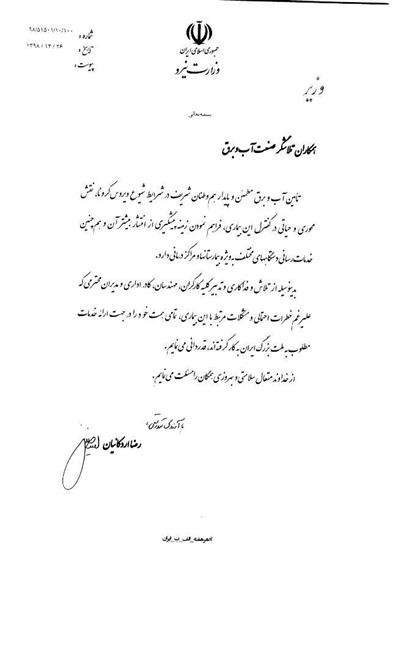 شماره: ۹۸/۵۱۵۰۱/۱۰/۱۰۰
تاریخ: ۱۳۹۸/۱۲/۲۶
پیوست:
جمهوری اسلامی ایران
وزارت نیرو
وزیر
بسمه تعالی
همکاران تلاشگر صنعت آب و برق
تأمین آب و برق مطمئن و پایدار هم‌وطنان شریف در شرایط شیوع ویروس کرونا، نقش
محوری و حیاتی در کنترل این بیماری، فراهم نمودن زمینه پیشگیری از انتشار بیشتر آن و هم‌چنین
خدمات رسانی دستگاههای مختلف به ویژه بیمارستانها و مراکز درمانی دارد.
بدینوسیله از تلاش و فداکاری و تدبیر کلیه کارگران، مهندسان، کادر اداری و مدیران محترمی که
علیرغم خطرات احتمالی و مشکلات مرتبط با این بیماری، تمامی همت خود را در جهت ارائه خدمات
مطلوب به ملت بزرگ ایران به کار گرفته‌اند، قدردانی می‌نمایم.
از خداوند متعال سلامتی و بهروزی همگان را مسئلت می‌نمایم.
رضا اردکانیان